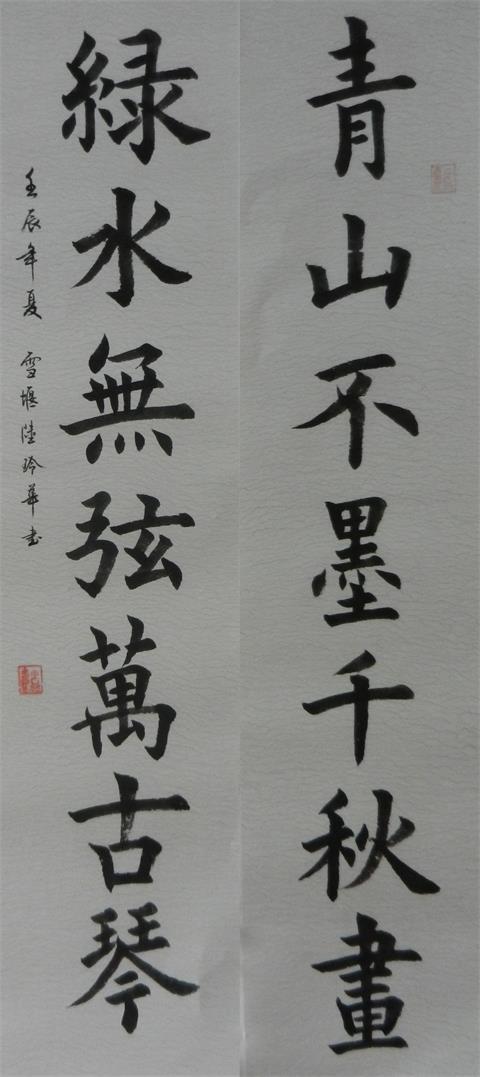 青山不墨千秋畫
緑水無弦萬古琴
壬辰年夏 雪堰陸玲華書